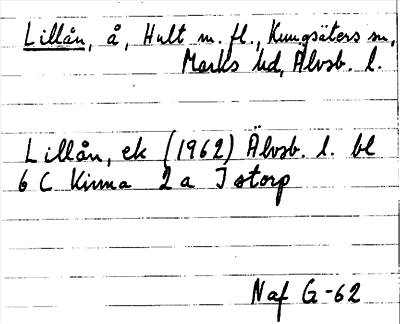 Lillån, å, Hult m. fl., Kungsäters sn,
Marks hd, Älvsb. l.
Lillån, ek (1962) Älvsb. l. bl
6 C Kinna 2 a Istorp
Naf G-62